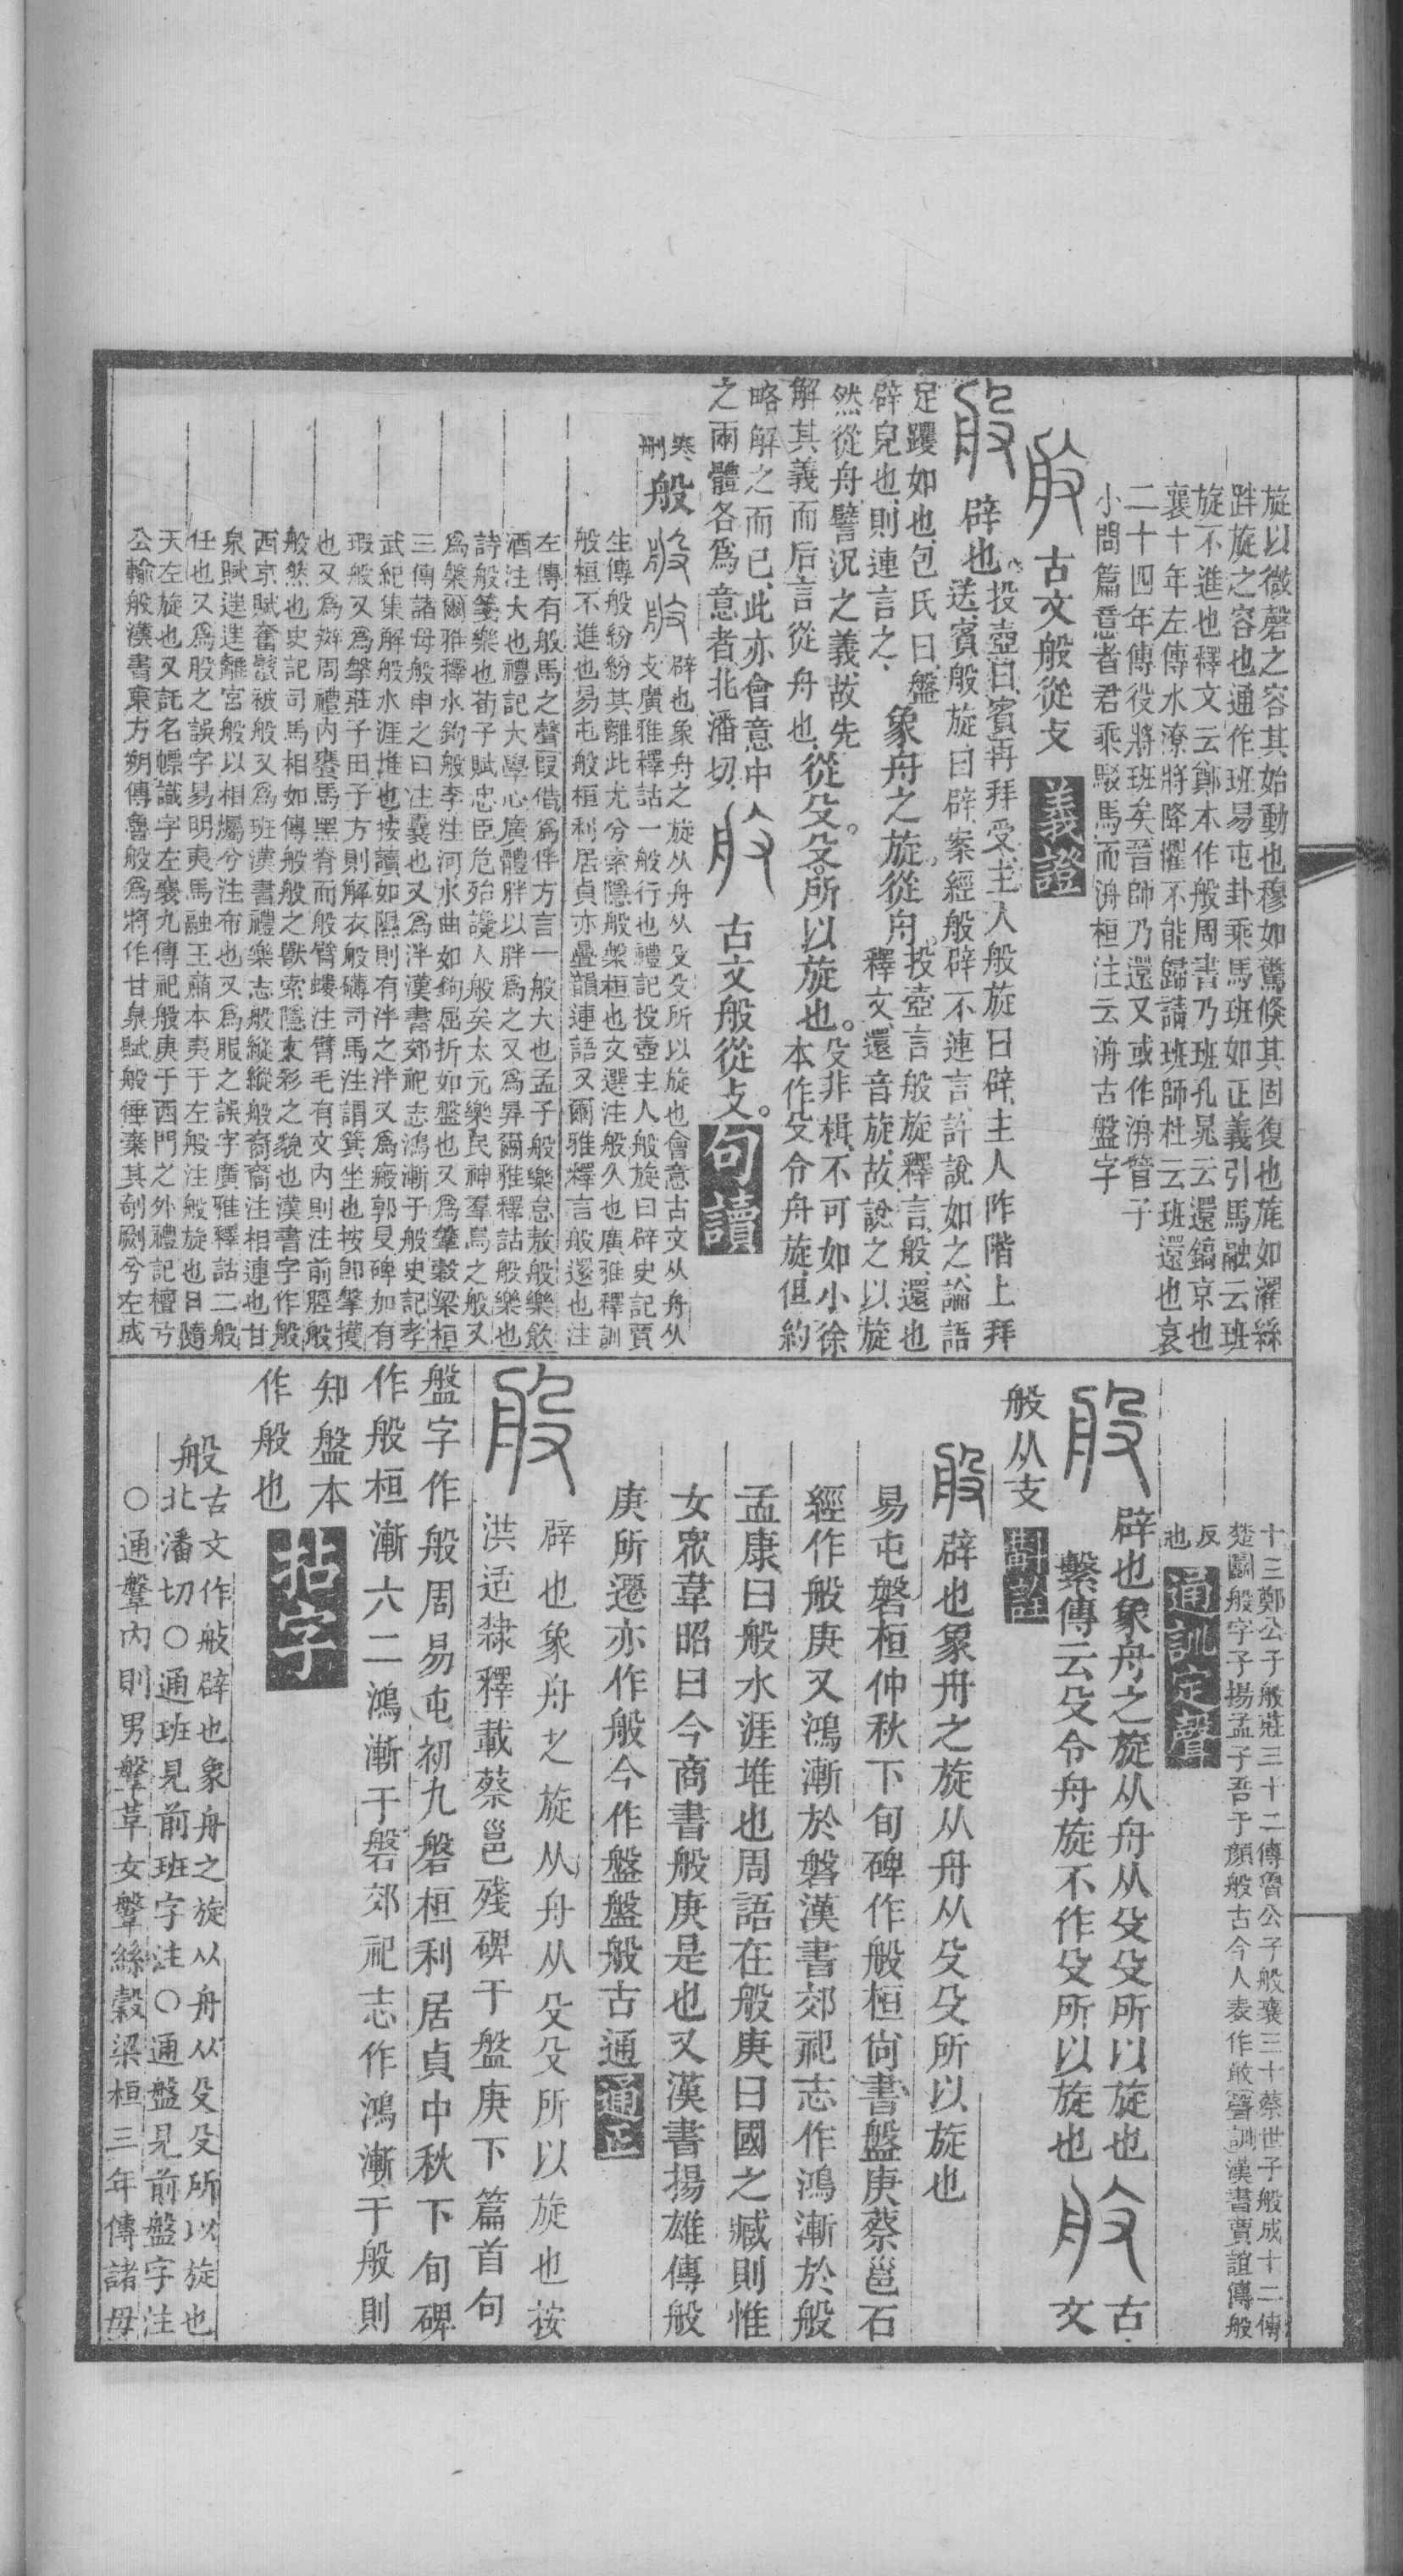 旋以微磬之容其始動也穆如驚倏其固復也旄如濯絲
跘旋之容也通作班易屯卦乘馬班如正義引馬融云班
旋不進也釋文云鄭本作般周書乃班孔晁云還鎬京也
襄十年左傳水潦將降懼不能歸請班師杜云班還也哀
二十四年傳役將班矣晉師乃還又或作洀管子
小問篇意者君乘駮馬而洀桓注云洀古盤字
古文般從攴
義證
辟也
投壺曰賓再拜受主人般旋曰辟主人阼階上拜
送賓般旋曰辟案經般辟不連言許說如之論語
足躩如也包氏曰盤
辟皃也則連言之
象舟之旋從舟
投壺言般旋釋言般還也
釋文還音旋故說之以旋
然從舟譬況之義故先
解其義而后言從舟也
從殳殳所以旋也
殳非楫不可如小徐
本作殳令舟旋但約
略解之而已此亦會意中
之兩體各爲意者北潘切
古文般從攴
句讀
寒刪
般
辟也象舟之旋从舟从殳殳所以旋也會意古文从舟从
攴廣雅釋詁一般行也禮記投壺主人般旋曰辟史記賈
生傳般紛紛其離此尤兮索隱般槃桓也文選注般久也廣雅釋訓
般桓不進也易屯般桓利居貞亦疊韻連語又爾雅釋言般還也注
左傳有般馬之聲叚借爲伴方言一般大也孟子般樂怠敖般樂飮
酒注大也禮記大學心廣體胖以胖爲之又爲昪爾雅釋詁般樂也
詩般箋樂也荀子賦忠臣危殆讒人般矣太元樂民神羣鳥之般又
爲槃爾雅釋水鉤般李注河水曲如鉤屈折如盤也又爲鞶穀梁桓
三傳諸母般申之曰注囊也又爲泮漢書郊祀志鴻漸于般史記孝
武紀集解般水涯堆也按讀如隰則有泮之泮又爲瘢郭旻碑加有
瑕般又爲搫莊子田子方則解衣般礴司馬注謂箕坐也按卽搫㨯
也又爲辬周禮內饔馬黑脊而般臂螻注臂毛有文內則注前脛般
般然也史記司馬相如傳般般之獸索隱文彩之皃也漢書字作般
西京賦奮鬣被般又爲班漢書禮樂志般縱縱般裔裔注相連也甘
泉賦䢔䢔離宮般以相燭兮注布也又爲服之誤字廣雅釋詁二般
任也又爲股之誤字易明夷馬融王肅本夷于左般注般旋也日隨
天左旋也又託名幖識字左襄九傳祀般庚于西門之外禮記檀弓
公輸般漢書東方朔傳魯般爲將作甘泉賦般倕棄其剞劂兮左成
十三鄭公子般莊三十二傳魯公子般襄三十蔡世子般成十二傳
楚鬭般字子揚孟子吾于顏般古今人表作敢聲訓漢書賈誼傳般
反也
通訓定聲
辟也象舟之旋从舟从殳殳所以旋也
古文
繫傳云殳令舟旋不作殳所以旋也
般从支
斠詮
辟也象舟之旋从舟从殳殳所以旋也
易屯磐桓仲秋下旬碑作般桓尙書盤庚蔡邕石
經作般庚又鴻漸於磐漢書郊祀志作鴻漸於般
孟康曰般水涯堆也周語在般庚曰國之臧則惟
女眾韋昭曰今商書般庚是也又漢書揚雄傳般
庚所遷亦作般今作盤盤般古通
通正
辟也象舟之旋从舟从殳殳所以旋也按
洪适隸釋載蔡邕殘碑于盤庚下篇首句
盤字作般周易屯初九磐桓利居貞中秋下旬碑
作般桓漸六二鴻漸于磐郊祀志作鴻漸于般則
知盤本
作般也
拈字
般
古文作𣪂辟也象舟之旋从舟从殳殳所以旋也
北潘切○通班見前班字注○通盤見前盤字注
○通鞶內則男鞶革女鞶絲穀梁桓三年傳諸母